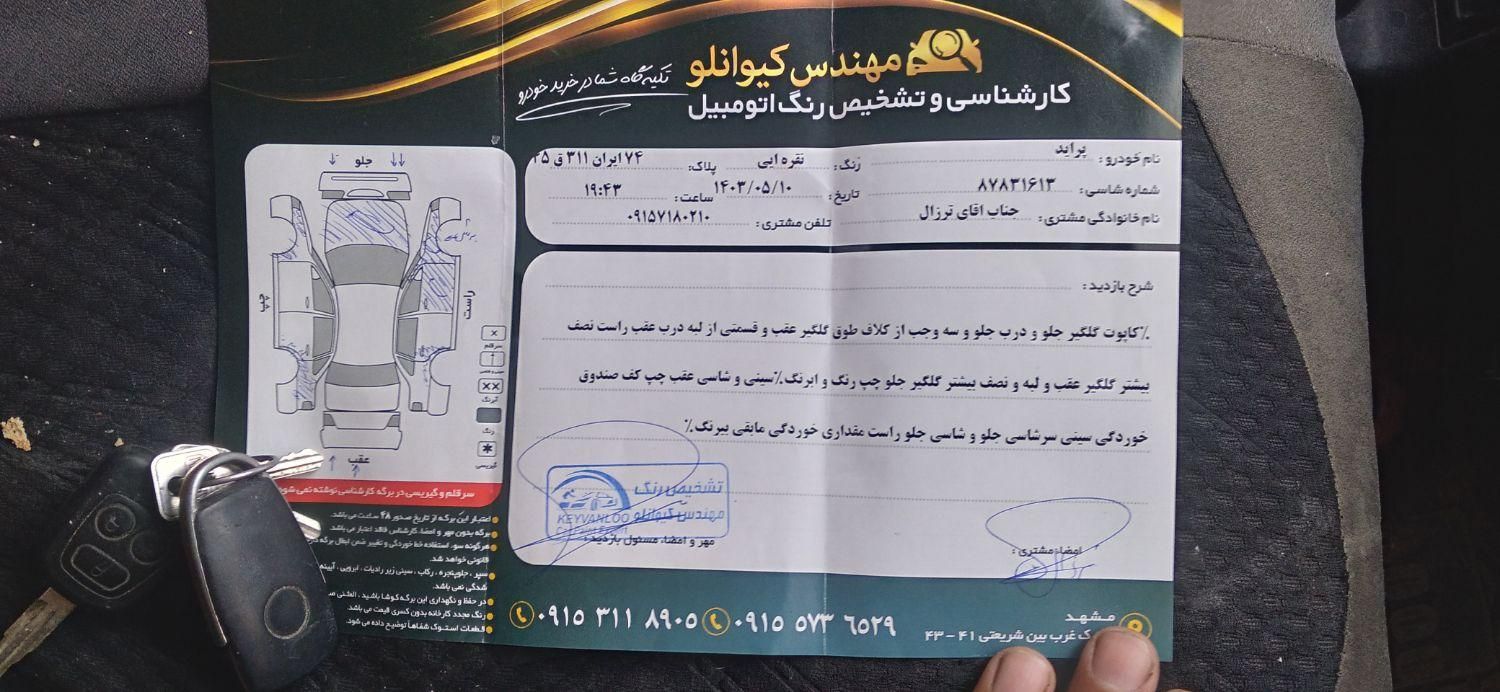 مهندس کیوانلو
تکیه گاه شما در خرید خودرو
کارشناسی و تشخیص رنگ اتومبیل
نام خودرو: پراید
رنگ: نقره ابی
پلاک: ۷۴ ایران ۳۱۱ ق ۲۵
شماره شاسی: ۸۷۸۳۱۶۱۳
تاریخ: ۱۴۰۳/۰۵/۱۰
ساعت: ۱۹:۴۳
نام خانوادگی مشتری: جناب اقای ترزال
تلفن مشتری: ۰۹۱۵۷۱۸۰۲۱۰
شرح بازدید:
٪کاپوت گلگیر جلو و درب جلو و سه وجب از کلاف طوق گلگیر عقب و قسمتی از لبه درب عقب راست نصف
بیشتر گلگیر عقب و لبه و نصف بیشتر گلگیر جلو چپ رنگ و ابرنگ٪سینی و شاسی عقب چپ کف صندوق
خوردگی سینی سرشاسی جلو و شاسی جلو راست مقداری خوردگی مابقی بیرنگ٪
جلو
چپ
راست
عقب
سرقلم
آبرنگ
رنگ
گیریسی
سرقلم و گیریسی در برگه کارشناسی نوشته نمی شود
اعتبار این برگه از تاریخ صدور ۴۸ ساعت می باشد.
برگه بدون مهر و امضاء کارشناس فاقد اعتبار می باشد.
هرگونه سوء استفاده خط خوردگی و تغییر ضمن ابطال برگه
قانونی خواهد شد.
سپر ، جلوپنجره ، رکاب ، سینی زیر رادیات ، ابرویی ، آیینه
شدگی نمی باشد.
در حفظ و نگهداری این برگه کوشا باشید ، المثنی
رنگ مجدد کارخانه بدون کسری قیمت می باشد.
قطعات استوک شفاهاً توضیح داده می شود.
تشخیص رنگ
مهندس کیوانلو
KEYVANLOO
مهر و امضاء مسئول بازدید:
امضاء مشتری:
۰۹۱۵ ۳۱۱ ۸۹۰۵
۰۹۱۵ ۵۷۳ ۶۵۲۹
مشهد
غرب بین شریعتی ۴۱ - ۴۳